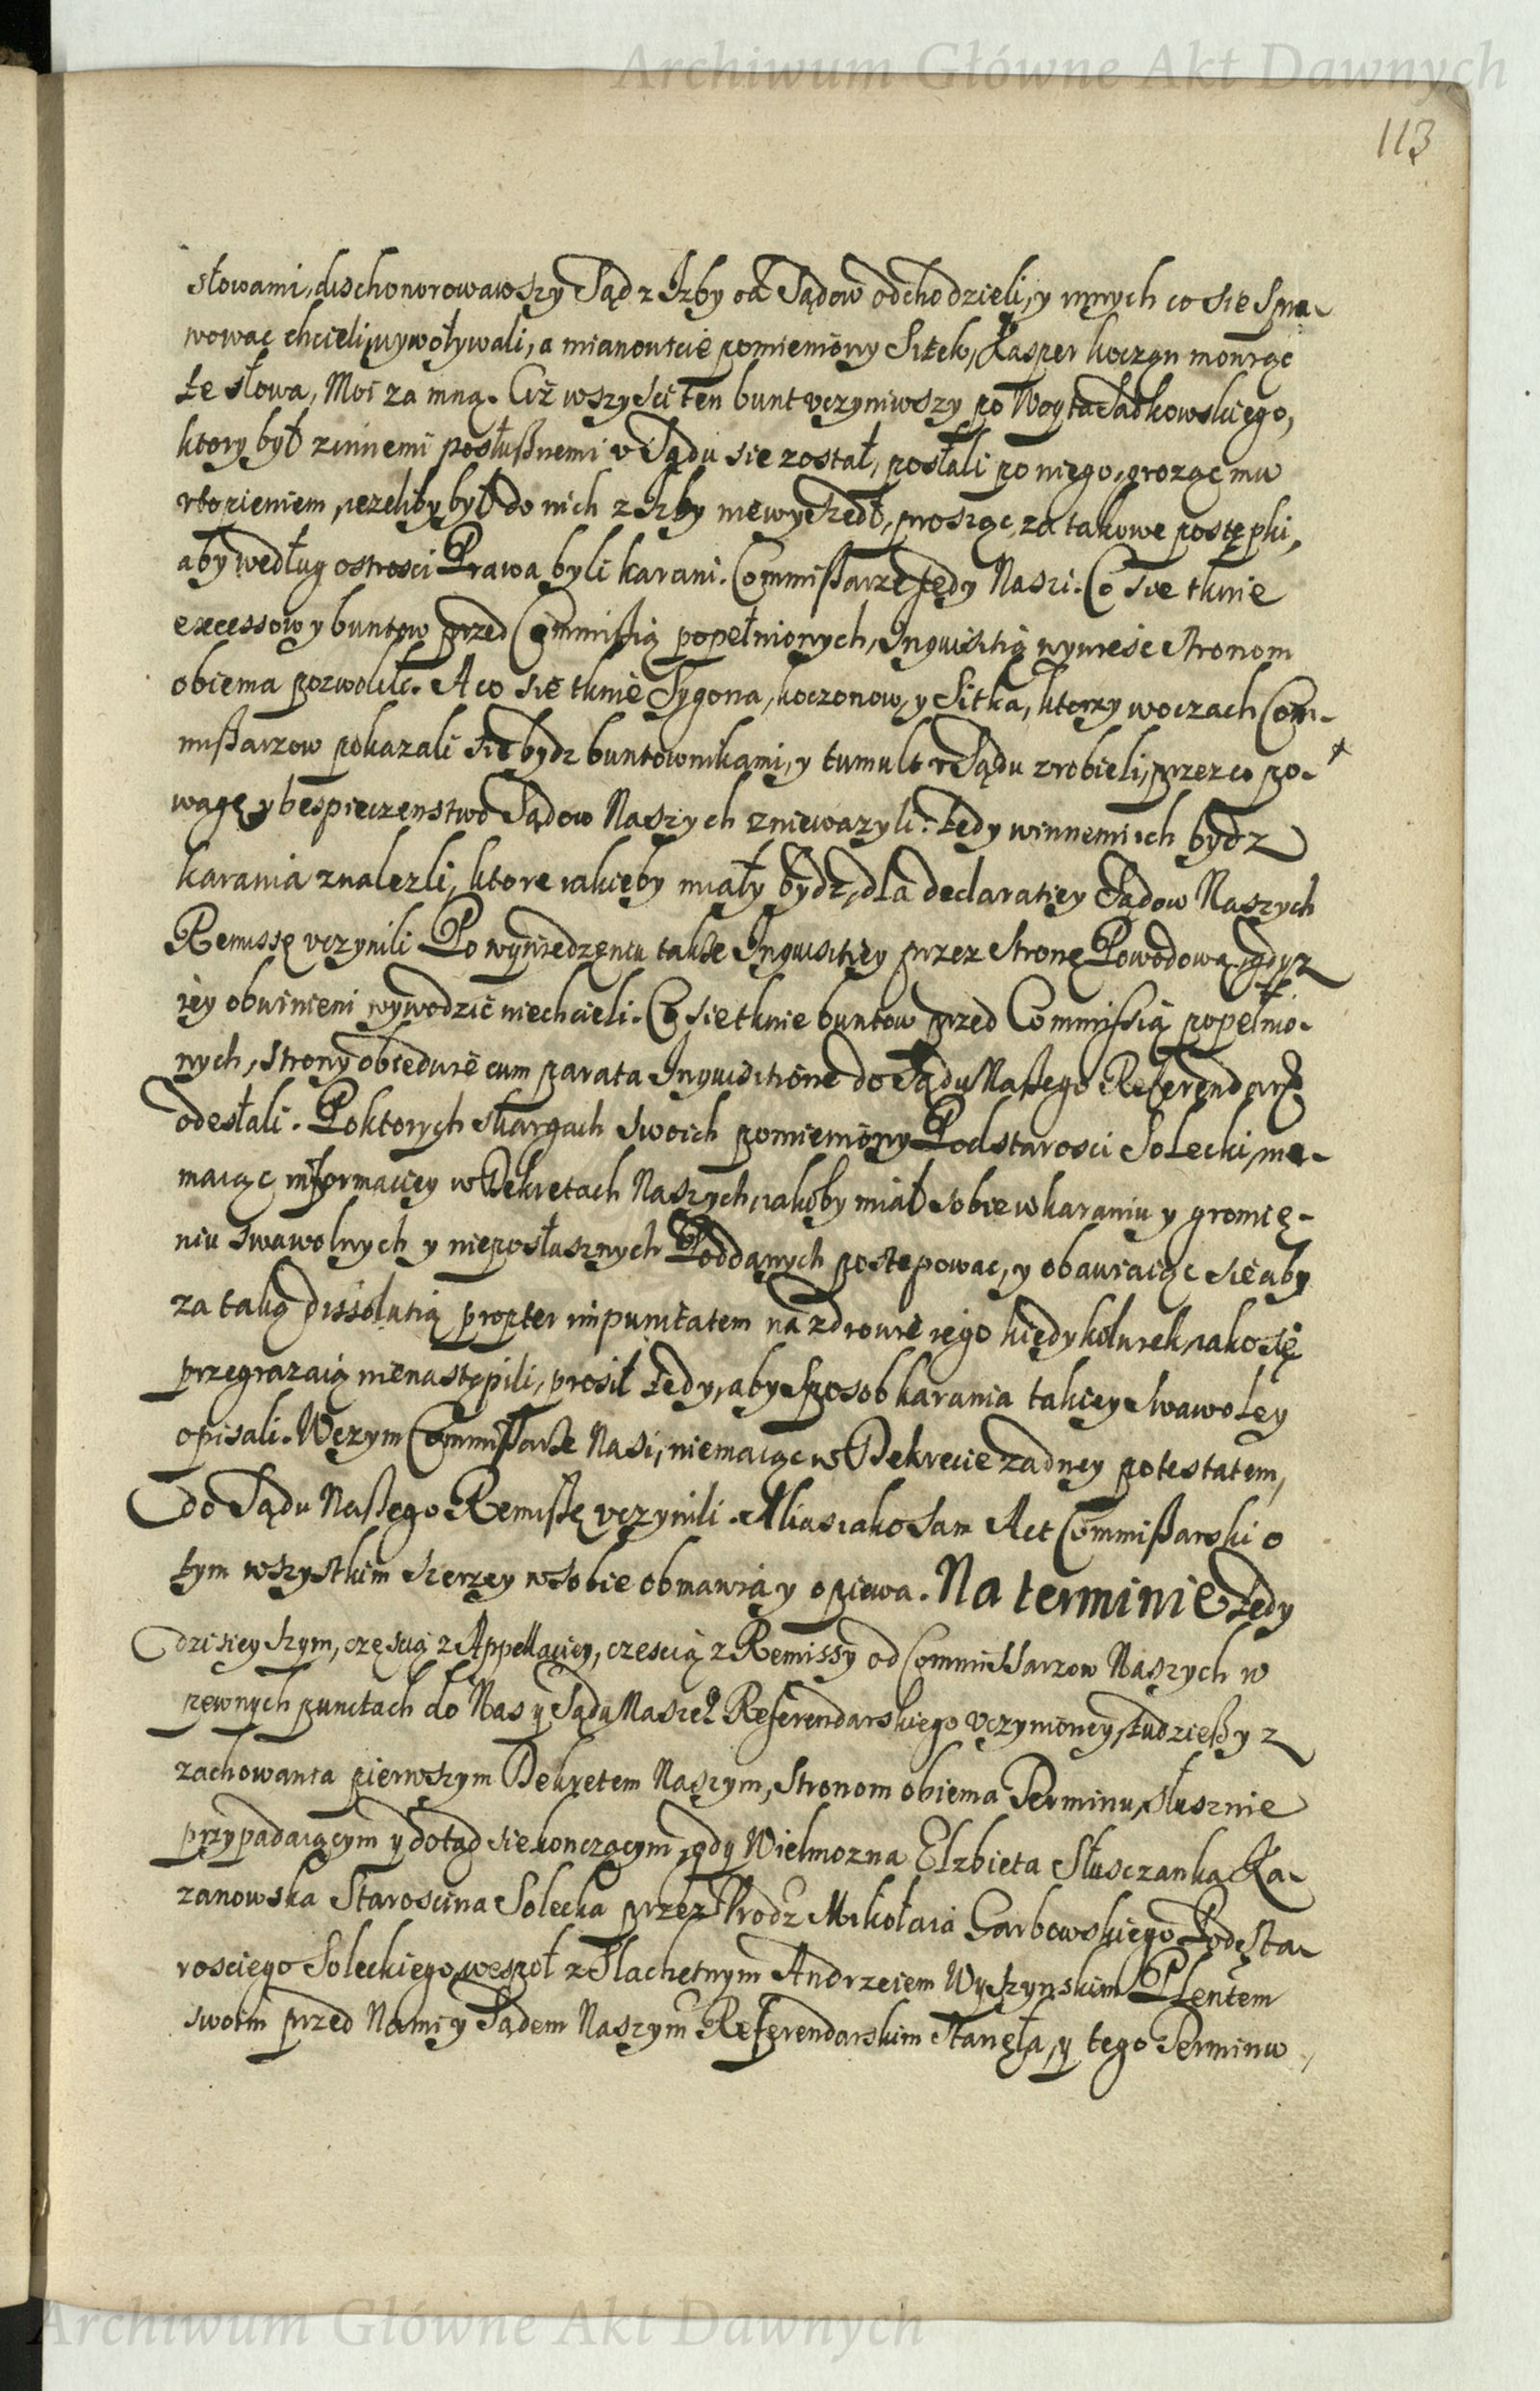 Archiwum Główne Akt Dawnych
113
słowami, dischonorowawszy Sąd z Izby od Sądow odchodzieli, y innych co sie spra-
wowac chcieli, wywoływali, a mianowicie pomieniony Sitek, Kasper koczęn mowiąc
te słowa, Moi za mną. Ciż wszysci ten bunt vczyniwszy po Woyta Sadkowskiego,
ktory był z innemi posłusznemi v Sądu sie został, posłali po niego, grożąc mu
vtopieniem, jezeliby był do nich z Izby niewyszedł, prosząc, za takowe postępki,
aby według ostrosci Prawa byli karani. Commißarze tedy Naszi. Co sie tknie
excessow y buntow przed Commißią popełnionych, Inquisitią wyniesc stronom
obiema pozwolili. A co sie tknie Sygona, koczonow, y Sitka, ktorzy w oczach Com-
mißarzow pokazali się bydz buntownikami, y tumult v Sądu zrobieli, przez co po-
wagę y bespieczenstwo Sądow Naszych zniewazyli: tedy winnemi ich bydz
karania znalezli, ktore jakieby miały bydz, dla declaratiey Sądow Naszych
Remissę vczynili Po wywiedzeniu także Inquisitiey przez stronę Powodową, gdyz
iey obwinieni wywodzic niechcieli. Co sie tknie buntow przed Commißią popełnio-
nych, strony obiedwie cum parata Inquisitione do Sądu Naßego Referendarz:
odesłali. Po ktorych skargach swoich pomieniony Podstarosci Solecki, nie-
maiąc informaciey w Dekretach Naszych, jakoby miał sobie w karaniu y gromie-
niu swawolnych y nieposłusznych Poddanych postępowac, y obawiaiąc sie aby
za taką dissolutią propter impunitatem na zdrowie jego kiedykolwiek, jako się
przegrazaią nienastąpili, prosił tedy, aby sposob karania takiey swawoley
opisali. W czym Commißarze Nasi, niemaiąc w Dekrecie zadney potestatem,
do Sądu Naßego Remißę vczynili. Alias jako sam Act Commißarski o
tym wszystkim szerzey w sobie obmawia y opiewa. Na terminie tedy
dzisieyszym, częscią z Appellaciey, czescią z Remissy od Commissarzow Naszych w
pewnych punctach do Nas y Sądu Naszeo Referendarskiego vczynioney, tudzieß y z
zachowania pierwszym Dekretem Naszym, stronom obiema Terminu, słusznie
przypadaiącym y dotąd sie konczącym, gdy Wielmozna Elzbieta Słusczanka Ka-
zanowska Staroscina Solecka przez Vrodz Mikołaia Garbowskiego Podsta-
rosciego Soleckiego, wespoł z Slachetnym Andrzeiem Wyszynskim Plentem
swoim przed Nami y Sądem Naszym Referendarskim stanęła, y tego Terminu
Archiwum Główne Akt Dawnych